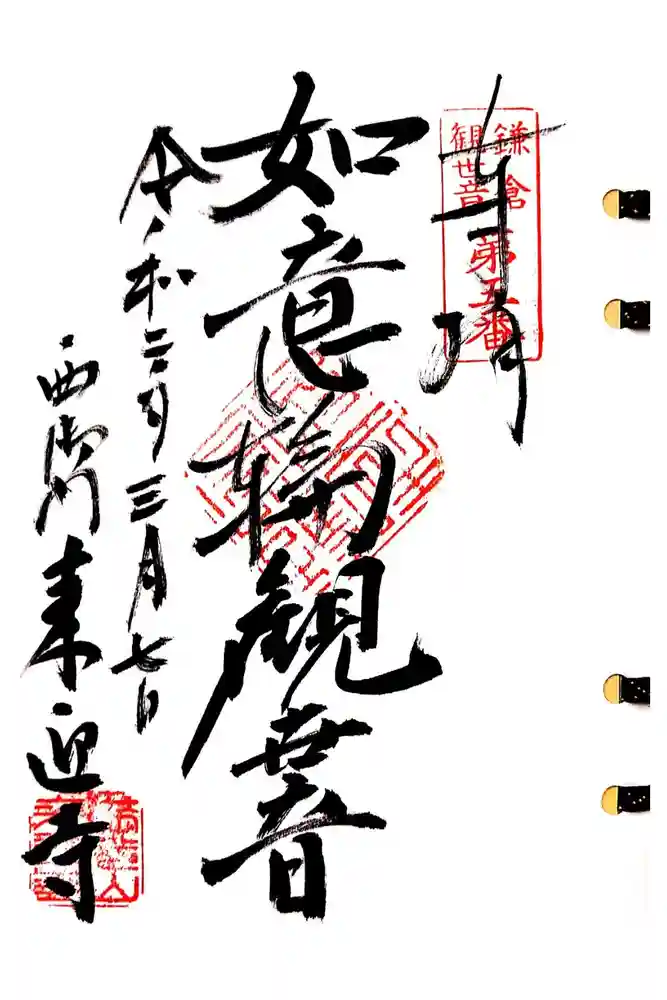 奉拝
鎌倉
観世音
第五番
如意輪観世音
令和二年三月七日
西御門
来迎寺